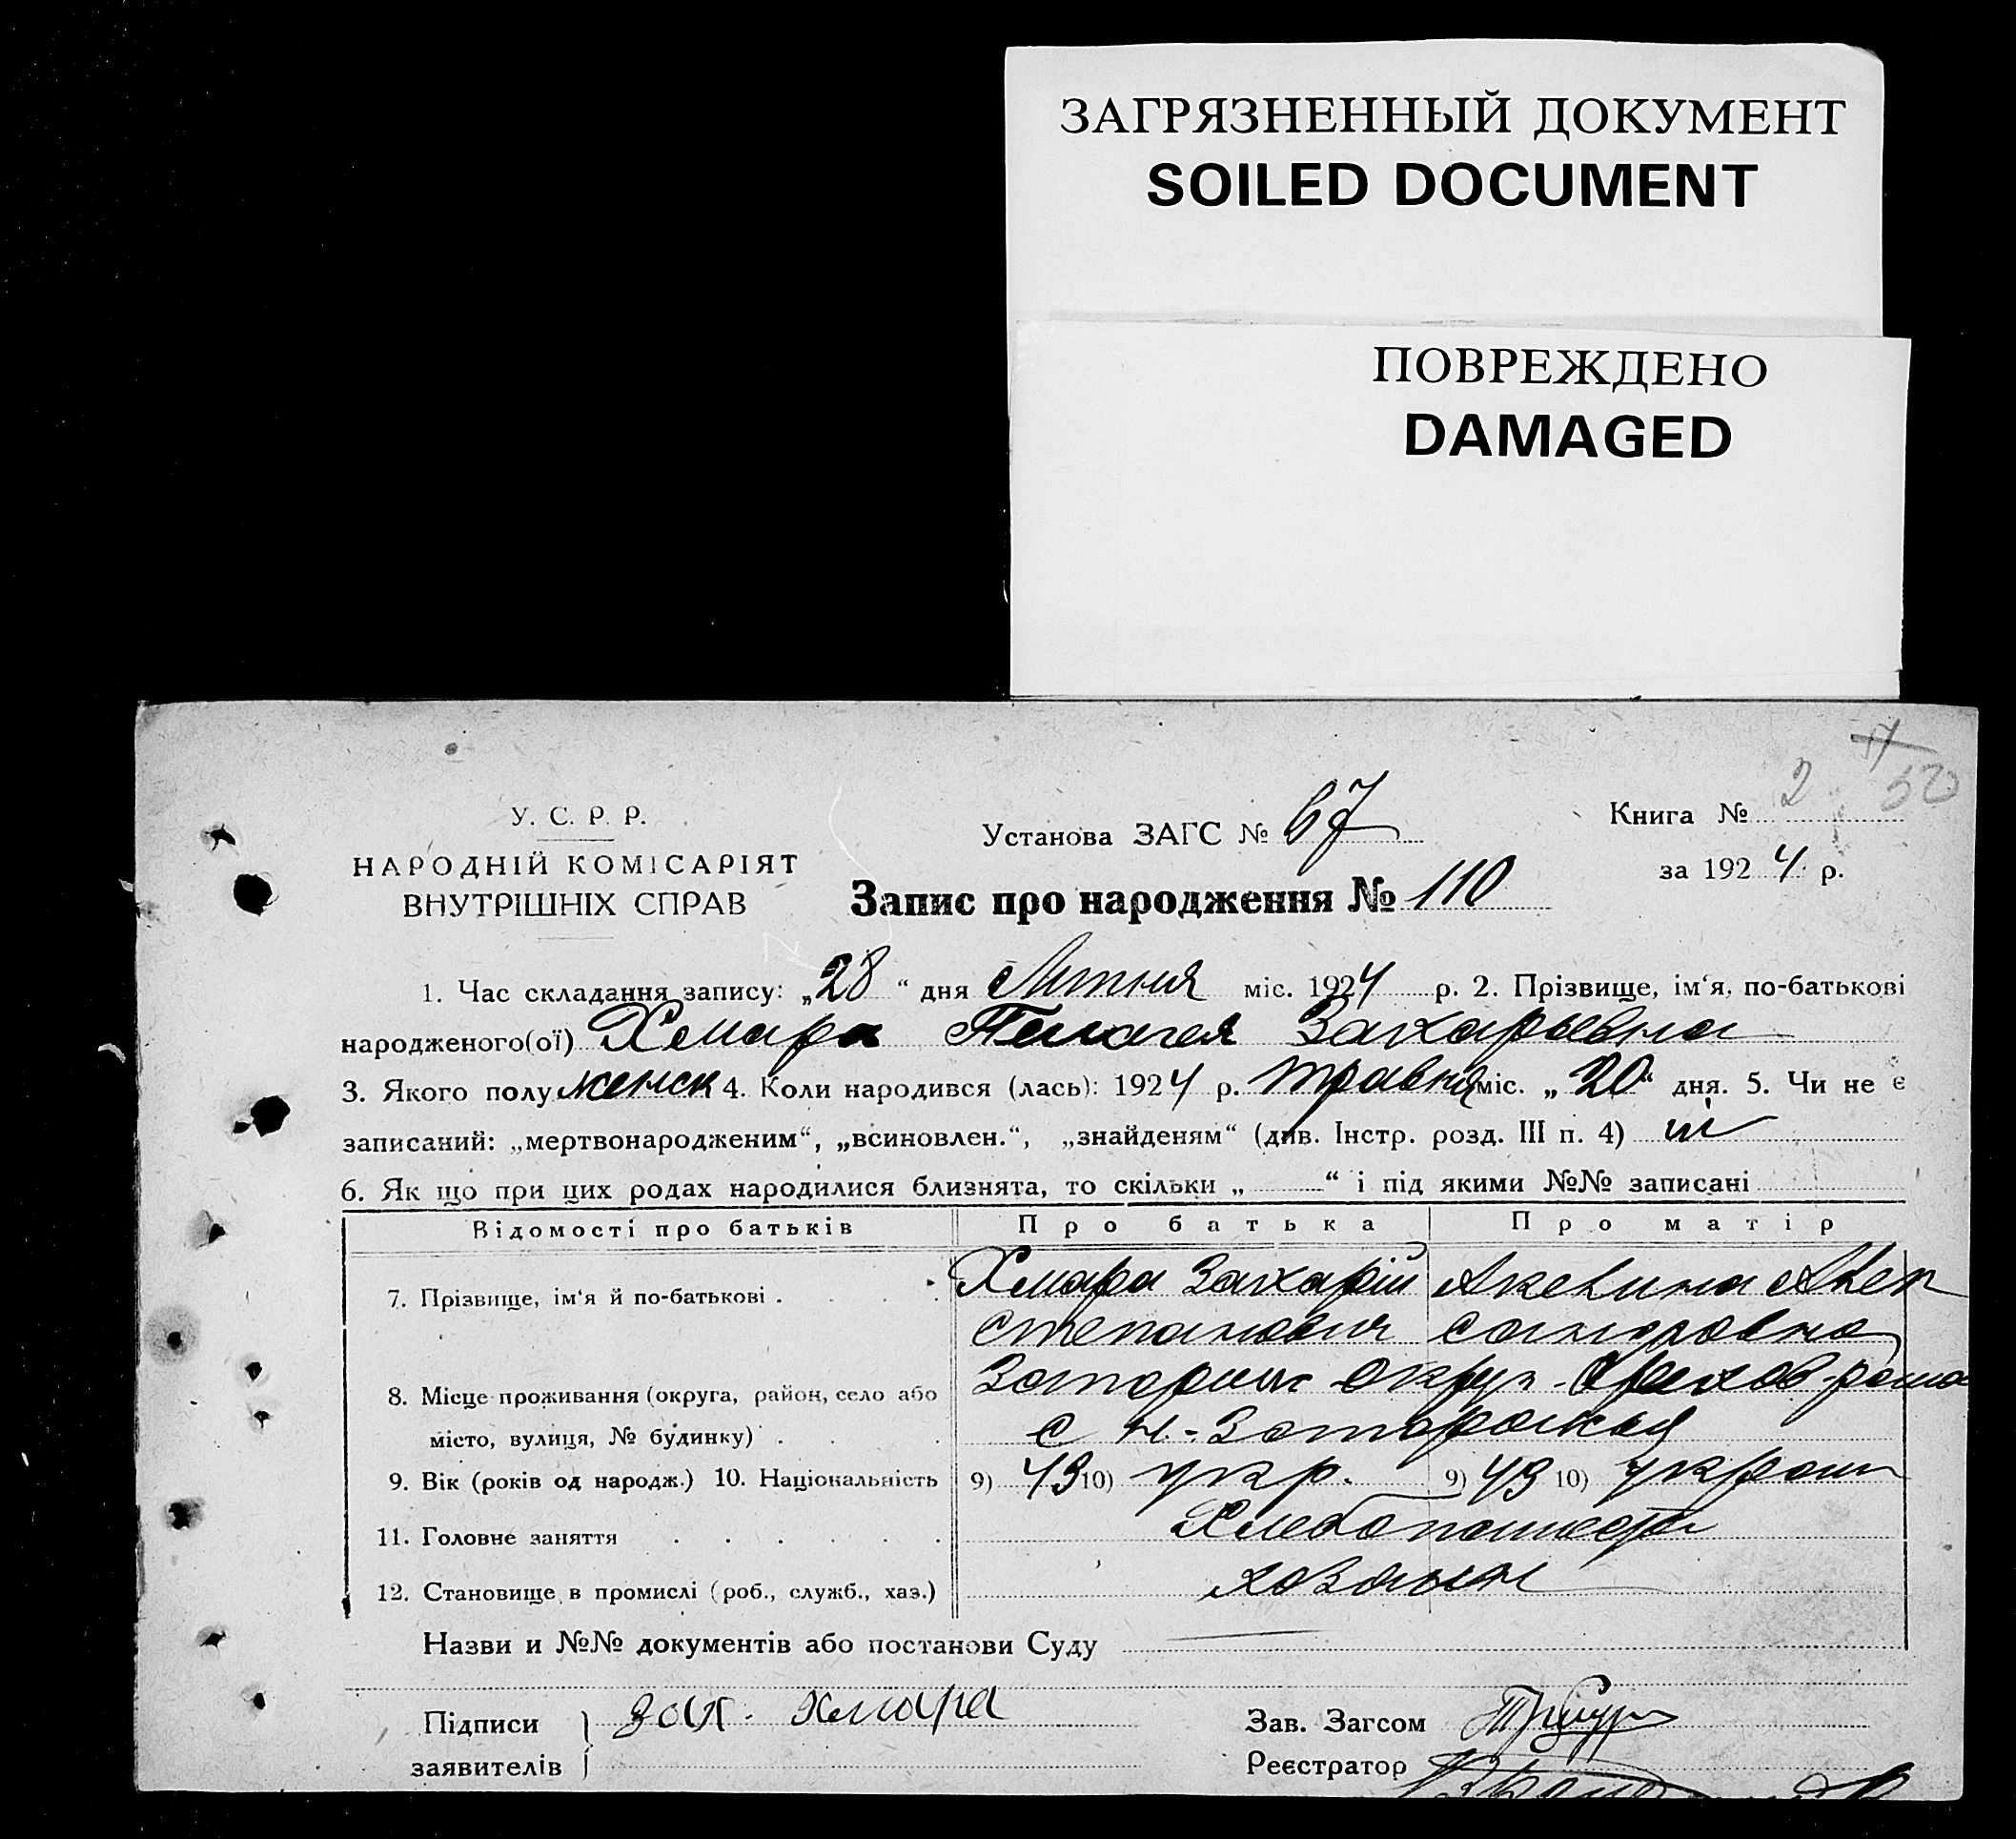 ЗАГРЯЗНЕННЫЙ ДОКУМЕНТ
SOILED DOCUMENT
ПОВРЕЖДЕНО
DAMAGED
50
У. С. Р. Р.
НАРОДНІЙ КОМІСАРІЯТ
ВНУТРІШНІХ СПРАВ
Установа ЗАГС № 67
Книга № 2
за 1924 р.
Запис про народження № 110
1. Час складання запису: „28“ дня Липня міс. 1924 р. 2. Прізвище, ім‘я, по-батькові
народженого(ої) Хмара Пелагея Захарьевна
3. Якого полу женск 4. Коли народився (лась): 1924 р. травня міс. „20“ дня. 5. Чи не є
записаний: „мертвонародженим“, „всиновлен.“, „знайденям“ (див. Інстр. розд. III п. 4) ні
6. Як що при цих родах народилися близнята, то скільки „ “ і під якими №№ записані
Відомості про батьків Про батька Про матір
7. Прізвище, ім‘я й по-батькові Хмара Захарій Акелина Алек
Степанович сандровна
8. Місце проживання (округа, район, село або Запорізьк округ. Орехов района
місто, вулиця, № будинку) с Н.-Запорожья
9. Вік (років од народж.) 10. Національність 9) 43 10) укр. 9) 43 10) украин
11. Головне заняття Хлебопашество
12. Становище в промислі (роб., служб., хаз.) хозаин
Назви и №№ документів або постанови Суду
Підписи зах. хмара Зав. Загсом
заявителів Реєстратор